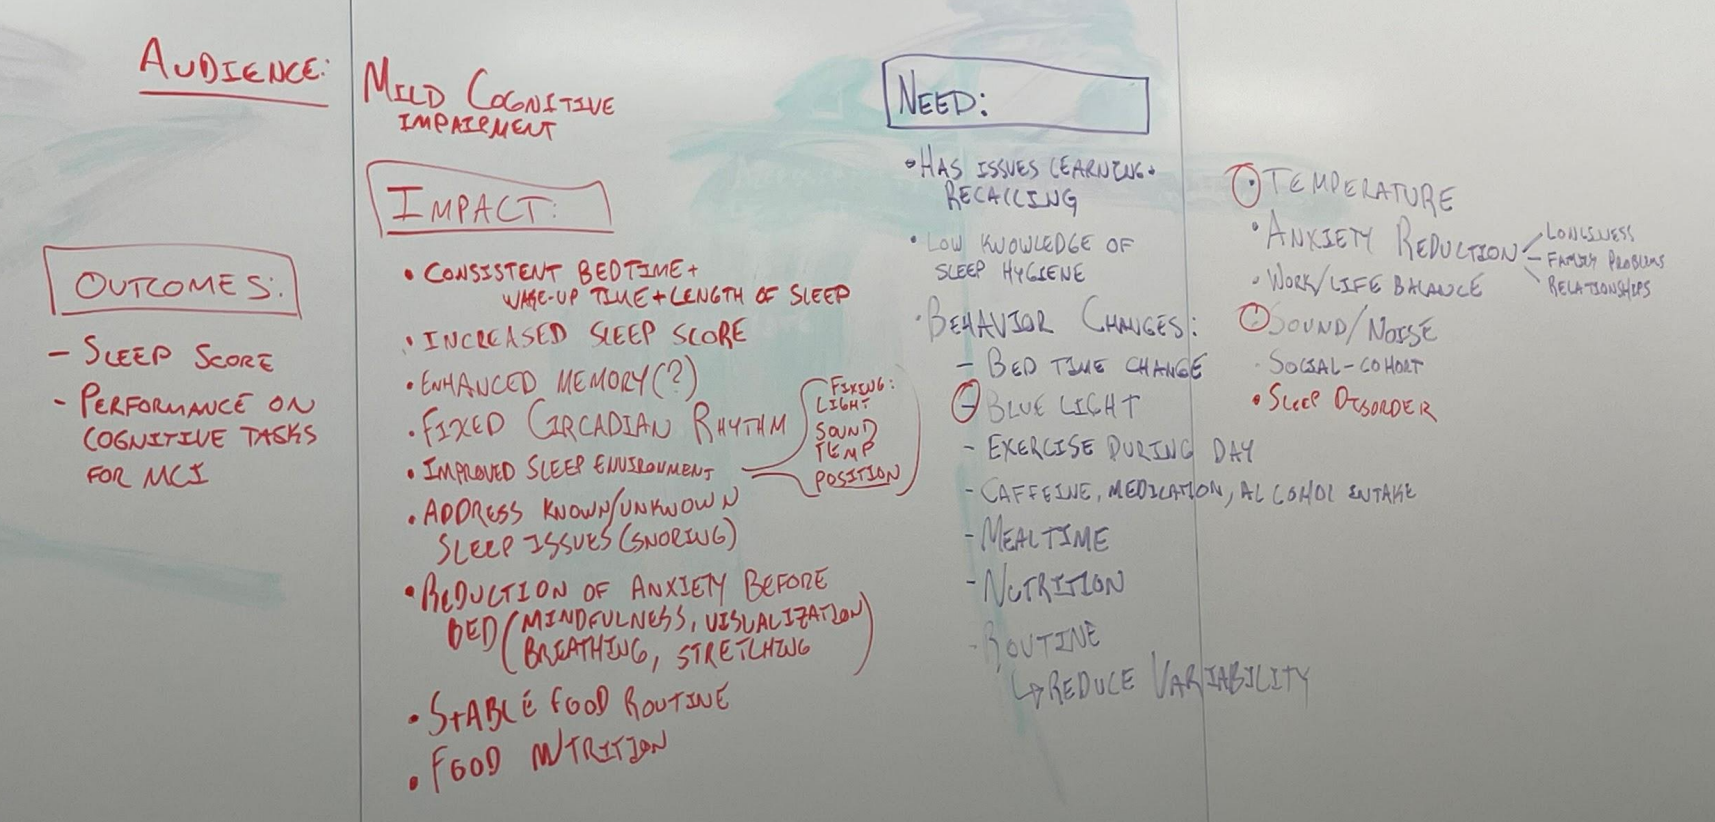 AUDIENCE:
MILD COGNITIVE
IMPAIRMENT
OUTCOMES:
- SLEEP SCORE
- PERFORMANCE ON
COGNITIVE TASKS
FOR MCI
IMPACT:
• CONSISTENT BEDTIME +
WAKE-UP TIME + LENGTH OF SLEEP
• INCREASED SLEEP SCORE
• ENHANCED MEMORY (?)
• FIXED CIRCADIAN RHYTHM
• IMPROVED SLEEP ENVIRONMENT
FIXING:
LIGHT
SOUND
TEMP
POSITION
• ADDRESS KNOWN/UNKNOWN
SLEEP ISSUES (SNORING)
• REDUCTION OF ANXIETY BEFORE
BED (MINDFULNESS, VISUALIZATION
BREATHING, STRETCHING)
• STABLE FOOD ROUTINE
• FOOD NUTRITION
NEED:
• HAS ISSUES LEARNING +
RECALLING
• LOW KNOWLEDGE OF
SLEEP HYGIENE
• BEHAVIOR CHANGES:
- BED TIME CHANGE
- BLUE LIGHT
- EXERCISE DURING DAY
- CAFFEINE, MEDICATION, ALCOHOL INTAKE
- MEALTIME
- NUTRITION
- ROUTINE
↳ REDUCE VARIABILITY
• TEMPERATURE
• ANXIETY REDUCTION
LONLINESS
- FAMILY PROBLEMS
RELATIONSHIPS
• WORK/LIFE BALANCE
• SOUND/NOISE
• SOCIAL-COHORT
• SLEEP DISORDER